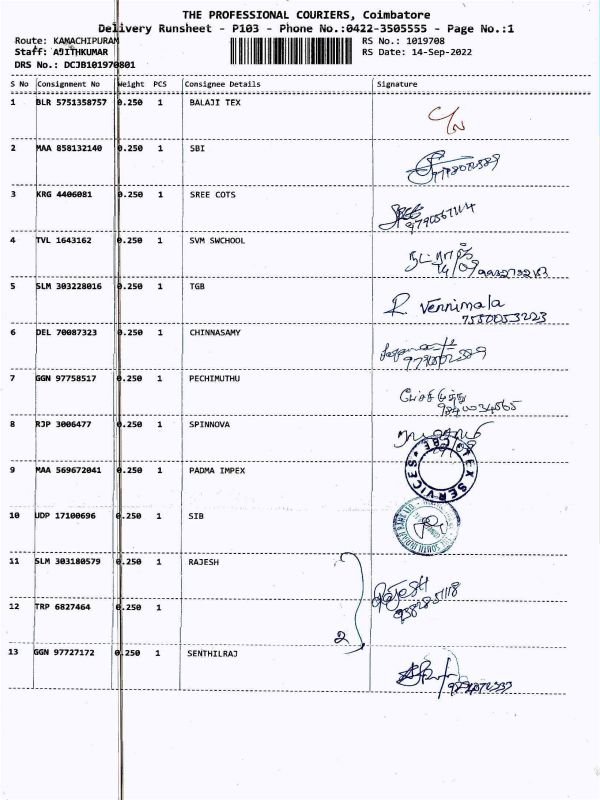 THE PROFESSIONAL COURIERS, Coimbatore
Delivery Runsheet - P103 - Phone No.:0422-3505555 - Page No.:1
Route: KAMACHIPURAM RS No.: 1019708
Staff: AJITHKUMAR RS Date: 14-Sep-2022
DRS No.: DCJB101970801
S No Consignment No Weight PCS Consignee Details Signature
1 BLR 5751358757 0.250 1 BALAJI TEX
2 MAA 858132140 0.250 1 SBI
3 KRG 4406081 0.250 1 SREE COTS
4 TVL 1643162 0.250 1 SVM SWCHOOL
14/09
5 SLM 303228016 0.250 1 TGB R. Vennimala
6 DEL 70087323 0.250 1 CHINNASAMY
7 GGN 97758517 0.250 1 PECHIMUTHU பேச்சிமுத்து
8 RJP 3006477 0.250 1 SPINNOVA
9 MAA 569672041 0.250 1 PADMA IMPEX TEX SERVICES * CBE *
10 UDP 17100696 0.250 1 SIB
11 SLM 303180579 0.250 1 RAJESH
12 TRP 6827464 0.250 1 2
13 GGN 97727172 0.250 1 SENTHILRAJ